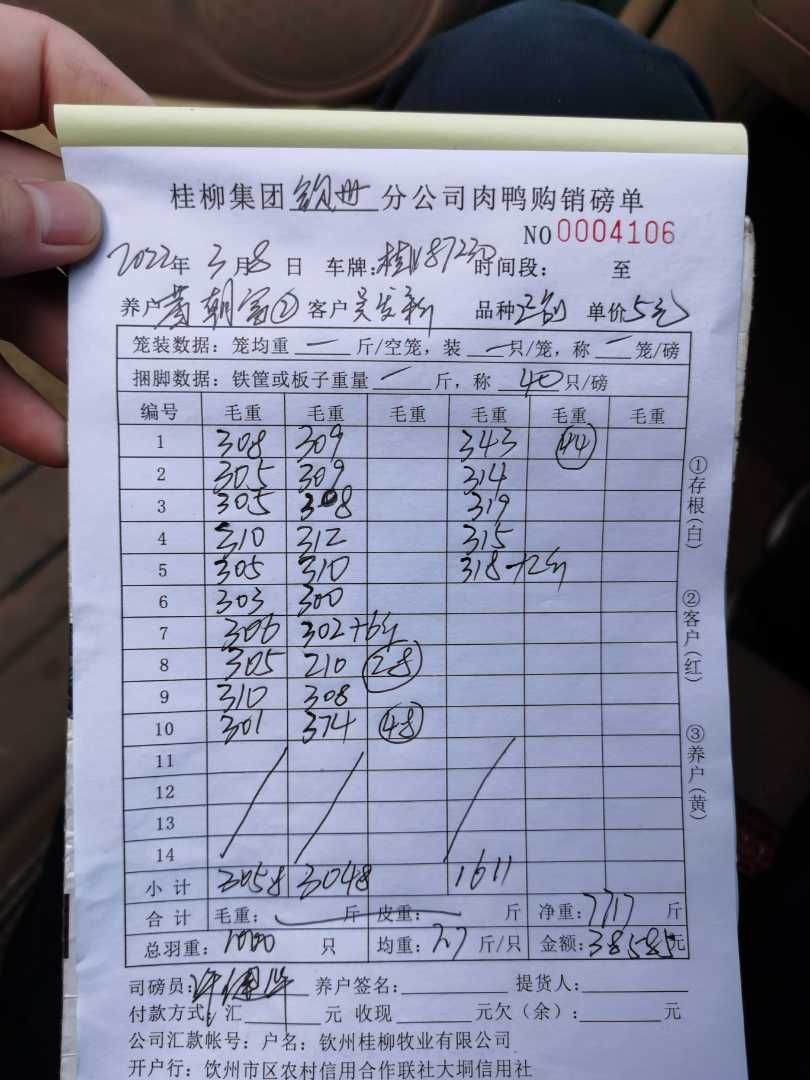 桂柳集团钦州分公司肉鸭购销磅单
NO 0004106
2022年 3月8日 车牌:桂 8723 时间段: 至
养户 黄朝富② 客户 吴发新 品种 单价5元
笼装数据:笼均重 一 斤/空笼,装 一 只/笼,称 一 笼/磅
捆脚数据:铁筐或板子重量 一 斤,称 40 只/磅
编号 毛重 毛重 毛重 毛重 毛重 毛重
1 308 309 343 44
2 305 309 314
3 305 308 319
4 310 312 315
5 305 310 318+2斤
6 303 300
7 306 302+6斤
8 305 210 28
9 310 308
10 301 374 48
11
12
13
14
小计 3058 3048 1611
合计 毛重: 斤 皮重: 斤 净重:7717 斤
总羽重:1000 只 均重:7.7 斤/只 金额:38585元
司磅员: 养户签名: 提货人:
付款方式:汇 元 收现 元欠(余): 元
公司汇款帐号:户名:钦州桂柳牧业有限公司
开户行:钦州市区农村信用合作联社大垌信用社
①存根(白)
②客户(红)
③养户(黄)